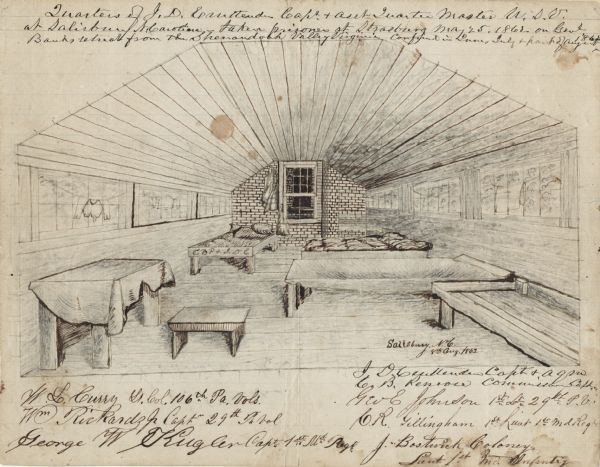 Quarters of J. D. Cruttenden Capt & asst Quarter Master U.S.V.
at Salisbury N. Carolina, taken prisoner at Strasburg May 25. 1862. on Genl
Banks retreat from the Shenandoah Valley Virginia Confined in June, July & part of Augt
Salisbury, N.C
Aug. 1862
J. D. Cruttenden Capt & A.Q.M
W. L. Curry Lt. Col. 106th Pa. Vols.
C. B. Penrose Commissary Capt
Geo E Johnson 1st Lt. 29th P.V.
Wm Rickards Jr Capt 29th Pa Vol
C.R. Gillingham 1st Lieut 1st Md Regt
George W Kugler Capt 1st Md Regt
J. Bostwick Coloney
Lieut 1st Md Infantry